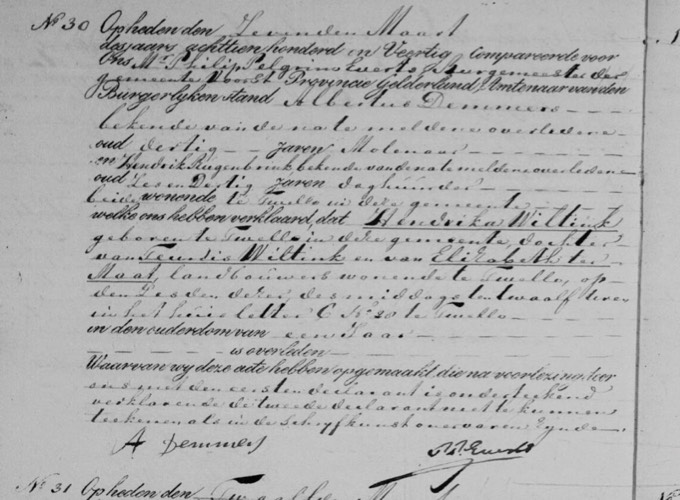 No 30 Op heden den Zevenden Maart
des jaars achttien honderd en Veertig compareerde voor
Ons Mr. Philip Pelgrim Everts, Burgemeester der
gemeente Voorst Provincie Gelderland Amtenaar van den
Burgerlyken stand Albertus Demmers
bekende van de na te meldene overledene
oud dertig jaren Molenaar
en Hendrik Regenbrink bekende van de na te meldene overledene
oud Zes en Dertig jaren daghuurder
beide wonende te Twello in deze gemeente
welke ons hebben verklaard, dat Hendrika Wiltink
geboren te Twello in deze gemeente, dochter
van Teunis Wiltink en van Elizabeth ter
Maat, landbouwers wonende te Twello, op
den Zesden dezer, des middags ten twaalf uren
in het huis letter C No 28 te Twello
in den ouderdom van een Jaar
is overleden
Waarvan wy deze acte hebben opgemaakt, die na voorlezing door
ons met den eersten declarant is onderteekend
verklarende de tweede declarant niet te kunnen
teekenen als in de schryfkunst onervaren zynde.
A Demmers P.P. Everts
No 31 Op heden den Twaalfde